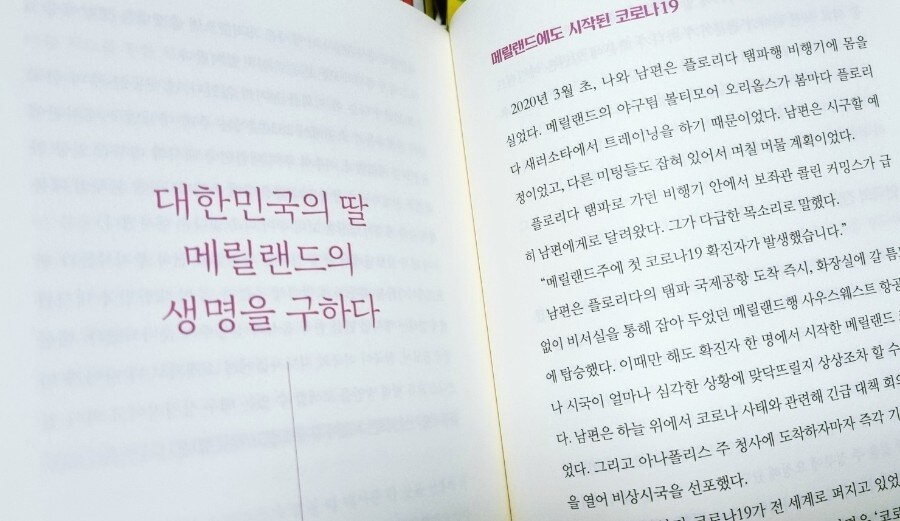 대한민국의 딸
메릴랜드의
생명을 구하다
메릴랜드에도 시작된 코로나19
2020년 3월 초, 나와 남편은 플로리다 탬파행 비행기에 몸을
실었다. 메릴랜드의 야구팀 볼티모어 오리올스가 봄마다 플로리
다 새러소타에서 트레이닝을 하기 때문이었다. 남편은 시구할 예
정이었고, 다른 미팅들도 잡혀 있어서 며칠 머물 계획이었다.
플로리다 탬파로 가던 비행기 안에서 보좌관 콜린 커밍스가 급
히 남편에게로 달려왔다. 그가 다급한 목소리로 말했다.
“메릴랜드주에 첫 코로나19 확진자가 발생했습니다.”
남편은 플로리다의 탬파 국제공항 도착 즉시, 화장실에 갈 틈도
없이 비서실을 통해 잡아 두었던 메릴랜드행 사우스웨스트 항공
에 탑승했다. 이때만 해도 확진자 한 명에서 시작한 메릴랜드
나 시국이 얼마나 심각한 상황에 맞닥뜨릴지 상상조차 할 수
다. 남편은 하늘 위에서 코로나 사태와 관련해 긴급 대책 회의
었다. 그리고 아나폴리스 주 청사에 도착하자마자 즉각 기
을 열어 비상시국을 선포했다.
코로나19가 전 세계로 퍼지고 있었